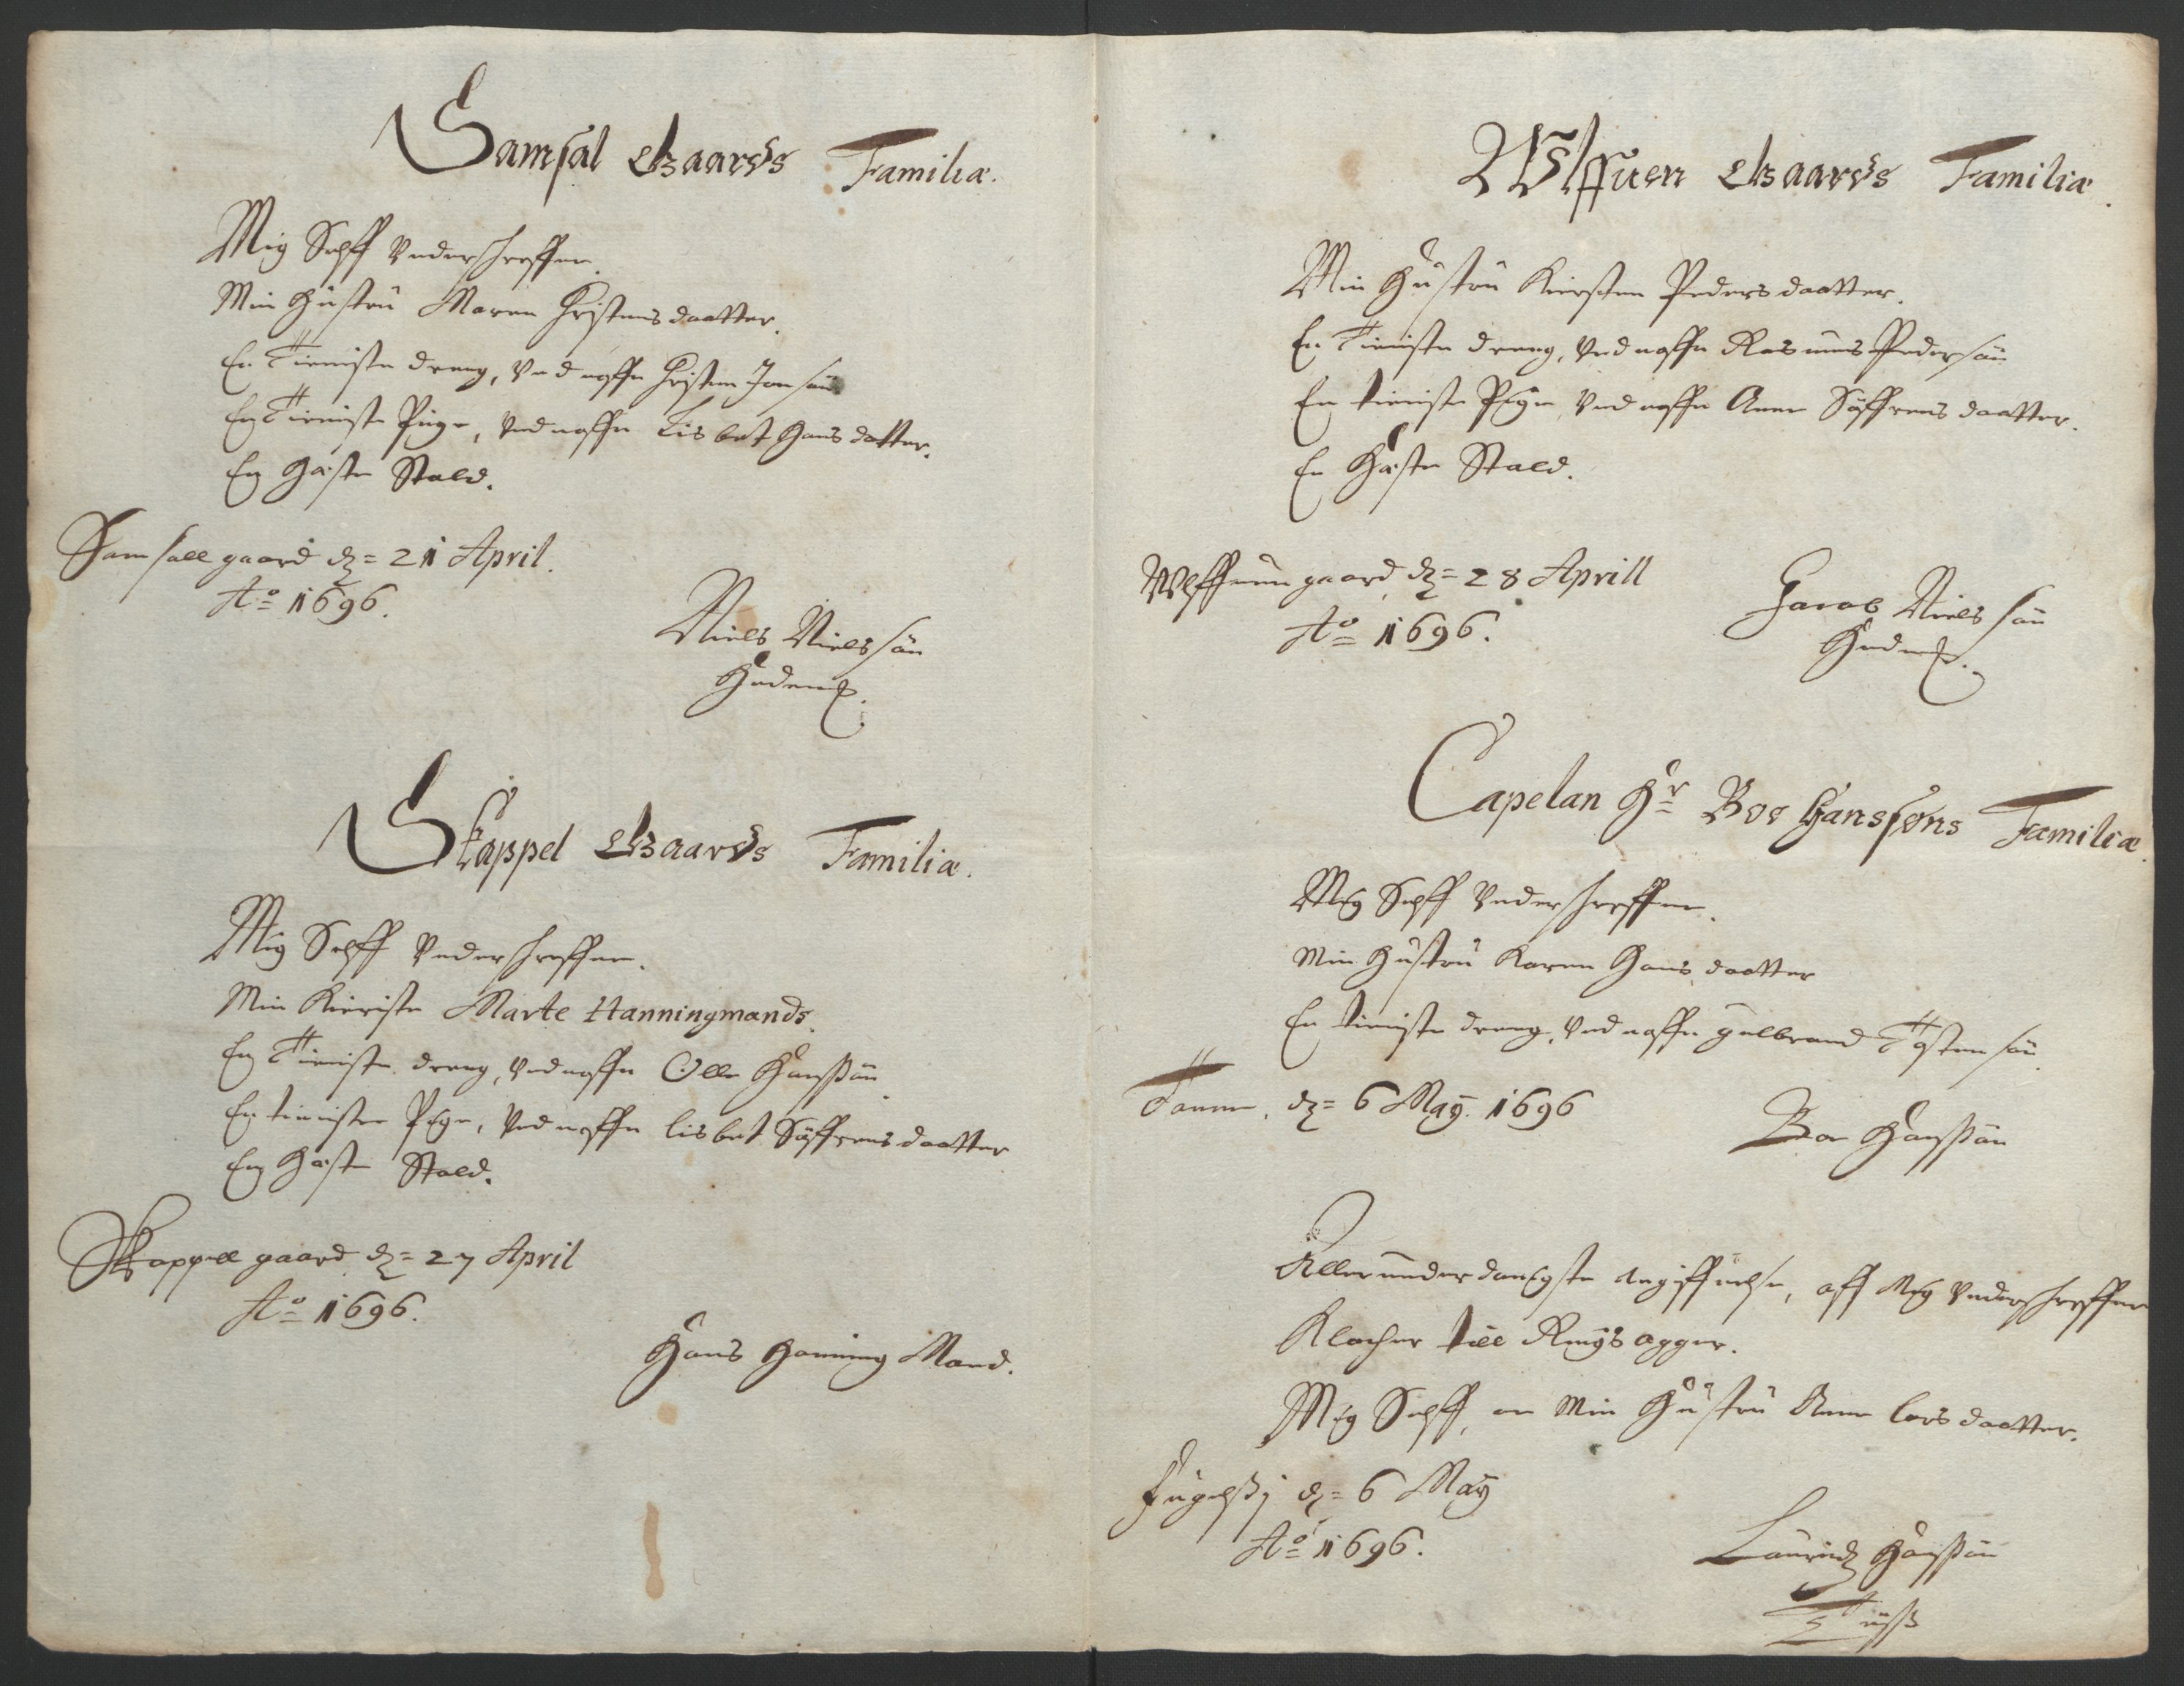 Samsal Gaards Familiæ.
Mig Selff Underskreffen.
Min Hustru Maren Christensdaatter.
En Tieniste dreng, Ved naffn Christen Jensøn
En Tieniste Pige, Ved naffn Lisbet Hansdatter.
En Hæste Stald.
Samsall gaard dz = 21 April.
Ao 1696.
Niels Nielssøn
Skappel Gaards Familiæ.
Mig Selff Underskreffen.
Min Kieriste Marte Hanningmands.
En Tieniste dreng, Ved naffn Olle Hanssøn
En tieniste Pige, Ved naffn lisbet Søffrensdaatter
En Hæste Stald.
Skappell gaard dz = 27 April
Ao 1696.
Hans Hanning Mand.
Ulffuen Gaards Familiæ.
Min Hustru Kiersten Pedersdaatter.
En Tieniste dreng, Ved naffn Rasmus Pedersøn
En tieniste Pige, Ved naffn Anne Søffrens daatter.
En Hæste Stald.
Ulffuen gaard, dz = 28 Aprill
Ao 1696.
Jacob Nielssøn
Capelan Hr Boe Hanssøns Familiæ.
Mig Selff Underskreffen.
Min Hustru Karen Hans daatter
En tieniste dreng, Ved naffn gulbrand Tostensøn
Famme, dz = 6 May. 1696
Boe Hanssøn
Allerunderdanigste Angiffuelse, aff Mig Underskreffne
Klocker till Ringsagger.
Mig Selff, en Min Hustru Anne Lars daatter.
dz = 6 May
Ao 1696.
Lauridz Hanssøn